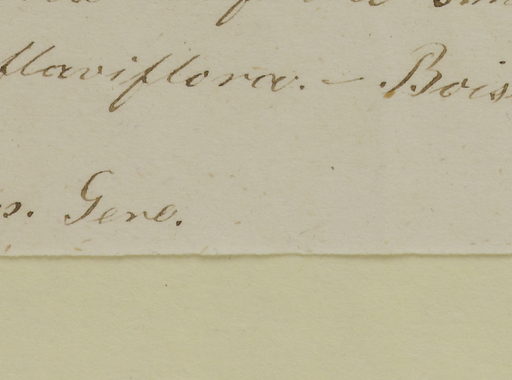 flaviflora. — Bois
s. Gene.